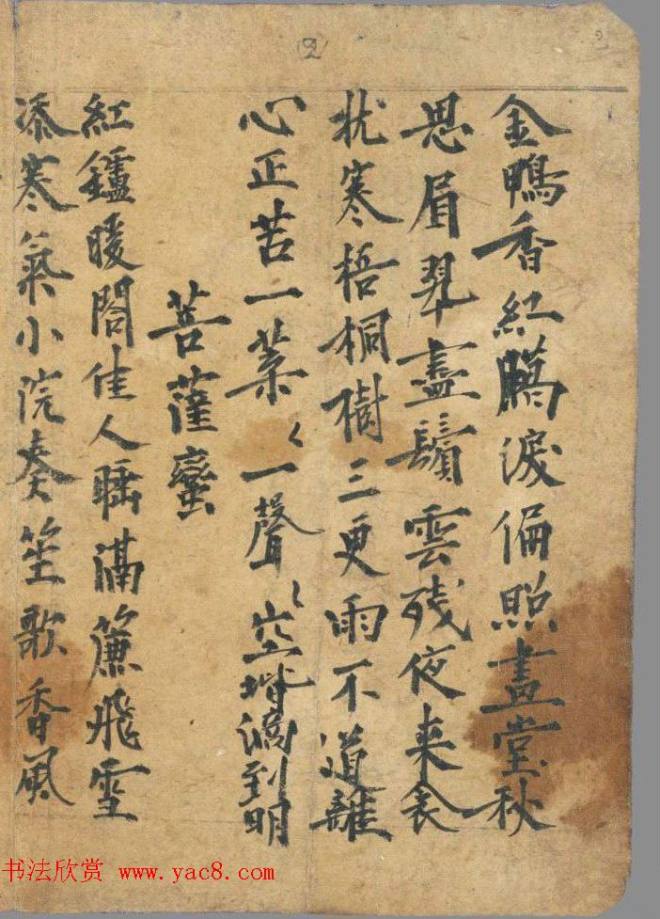 (2)
2
金鴨香紅臈淚偏照畫堂秋
思眉翠盡鬢雲残夜来衾
枕寒梧桐樹三更雨不道離
心正苦一葉〻一聲〻空堦滴到明
菩薩蠻
紅鑪暖閤佳人睡滿簾飛雪
添寒氣小院奏笙歌香風
书法欣赏 www.yac8.com